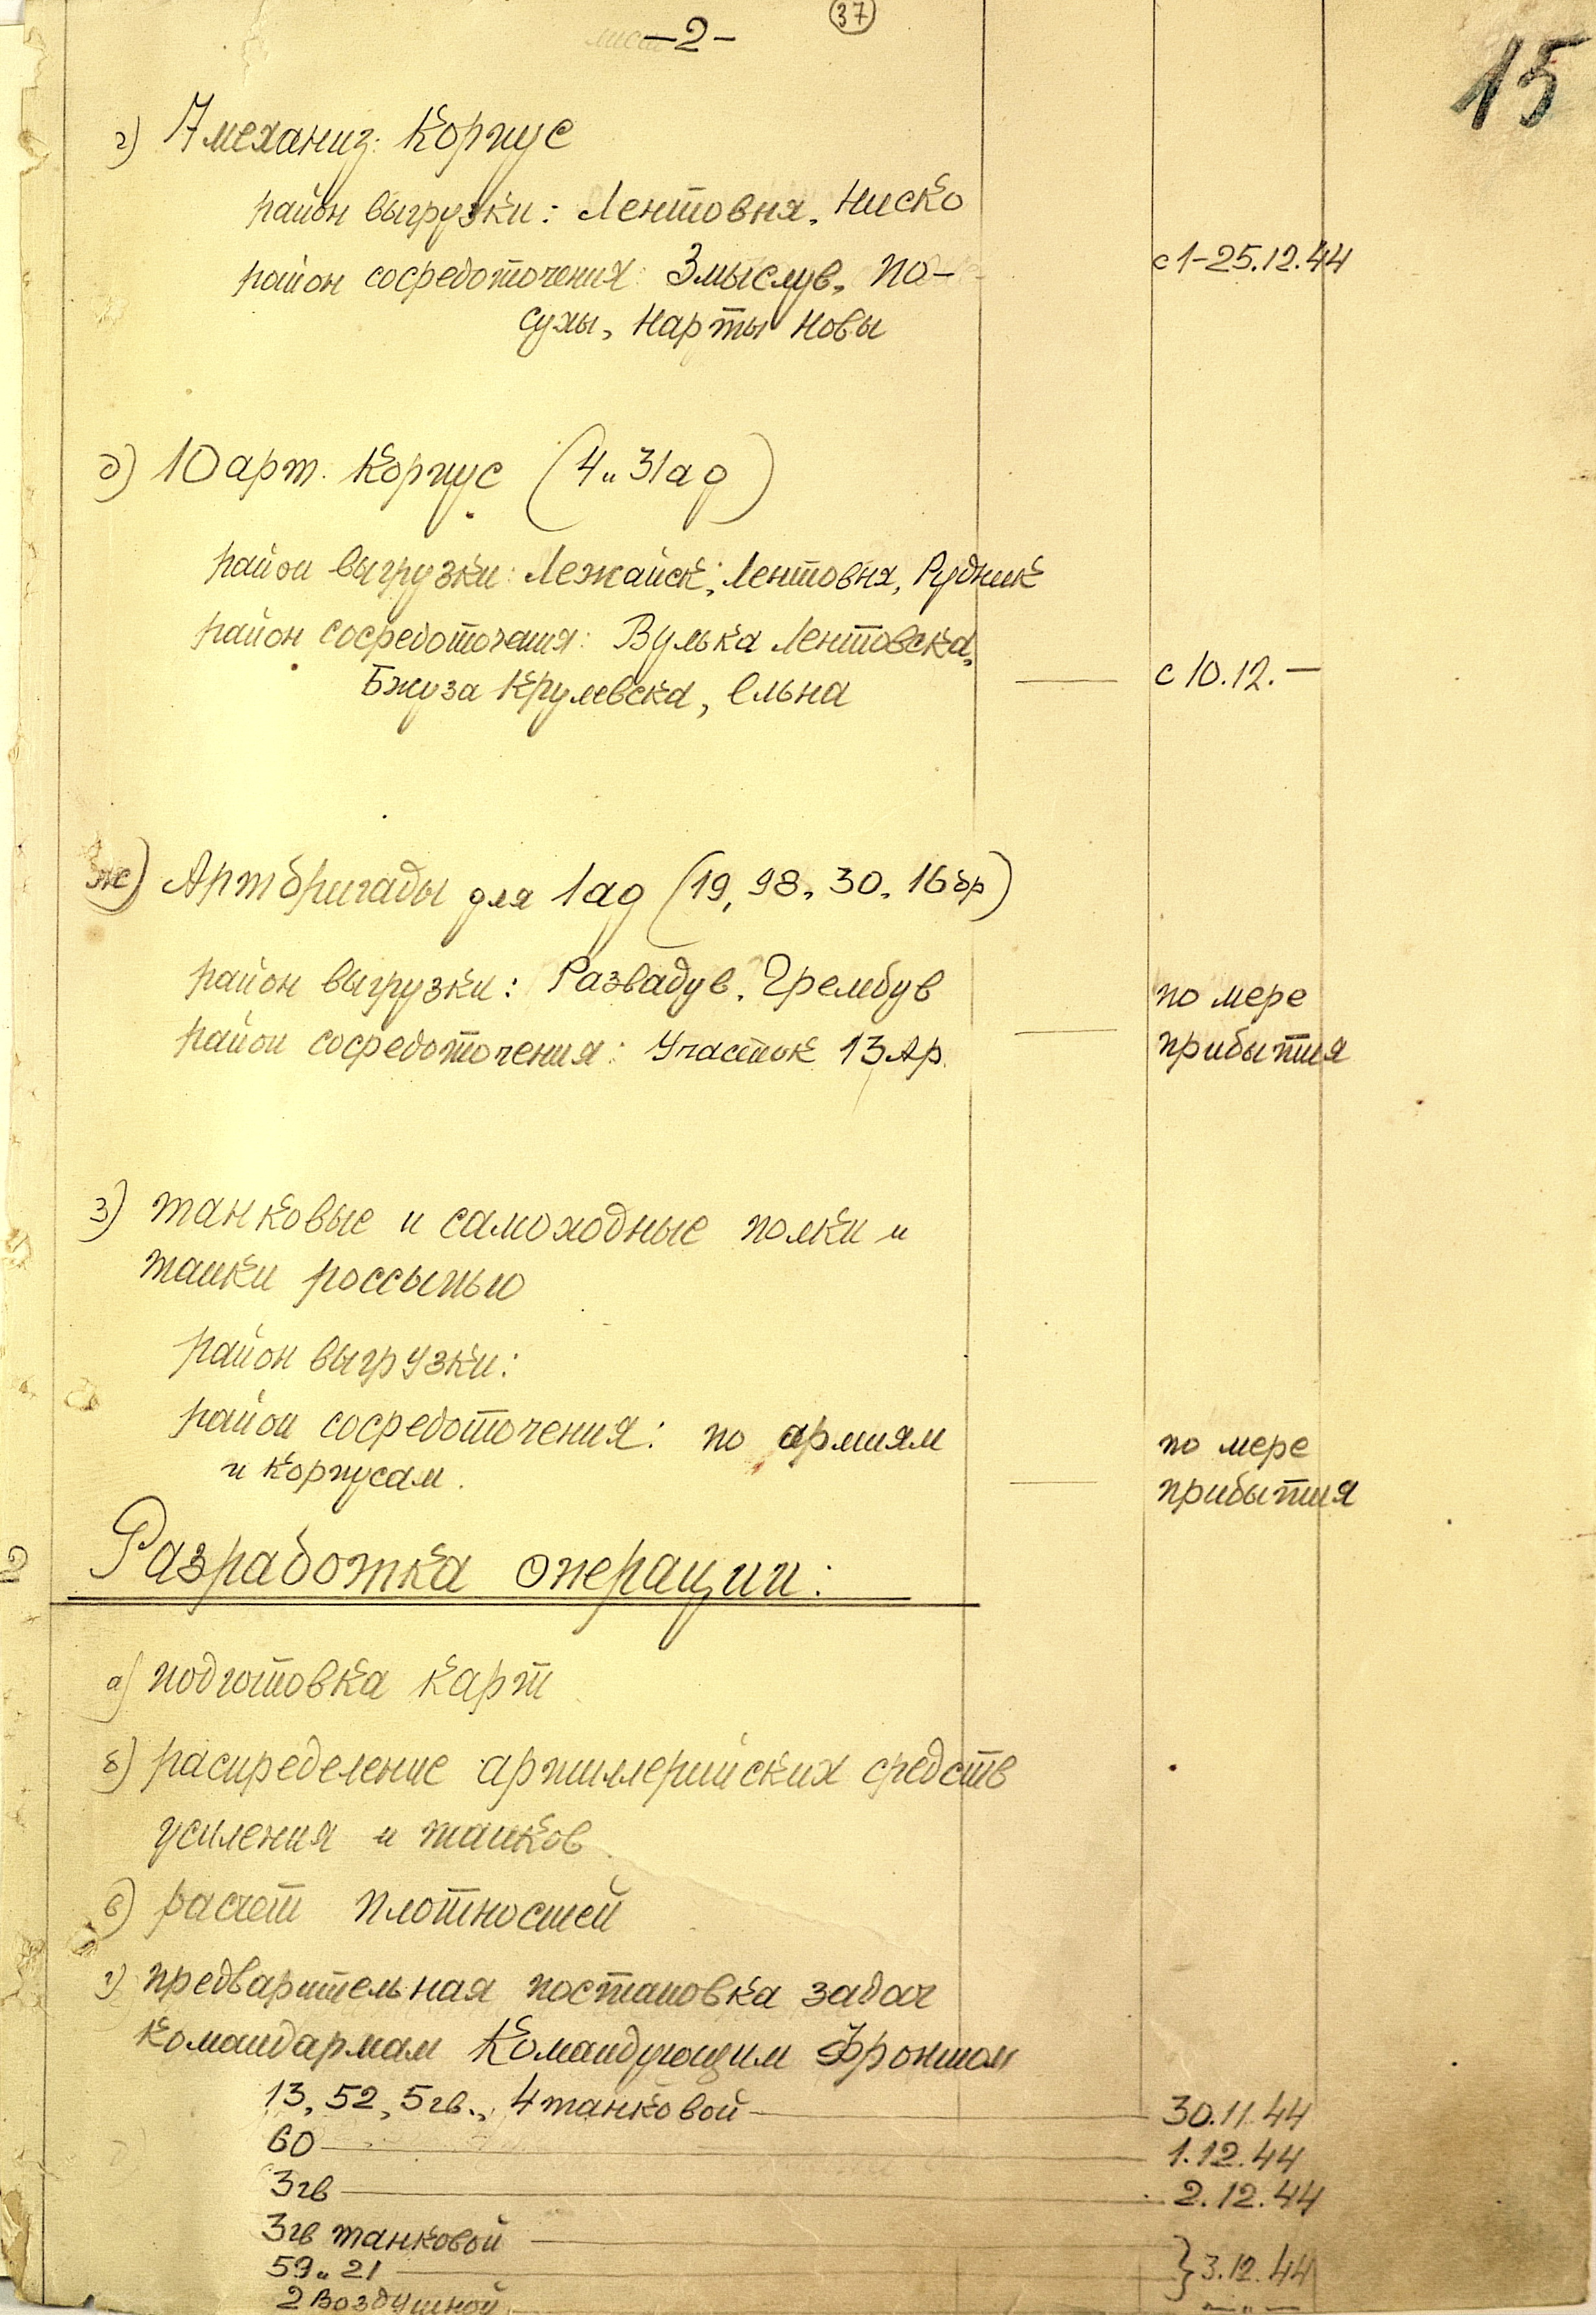 37
лист -2-
15
г) 7 механиз. Корпус
район выгрузки: Лентовня, Ниско
район сосредоточения: Змыслув, По-
сухы, Нарты Новы
с 1-25.12.44
д) 10 арт. Корпус (4 и 31 ад)
район выгрузки: Лежайск, Лентовня, Рудник
район сосредоточения: Вулька Лентовска,
Бжуза Крулевска, Ельна — с 10.12.—
ж) Артбригады для 1 ад (19, 98, 30, 16 бр)
район выгрузки: Развадув, Грембув
район сосредоточения: Участок 13 Ар. — по мере
прибытия
з) танковые и самоходные полки и
танки россыпью
район выгрузки:
район сосредоточения: по армиям
и корпусам. — по мере
прибытия
2 Разработка операции:
а) подготовка карт
б) распределение артиллерийских средств
усиления и танков
в) расчет плотностей
г) предварительная постановка задач
Командармам Командующим Фронтом
13, 52, 5 гв., 4 танковой — 30.11.44
60 — 1.12.44
3 гв — 2.12.44
3 гв танковой —
59 и 21 — } 3.12.44
2 Воздушной — —"—